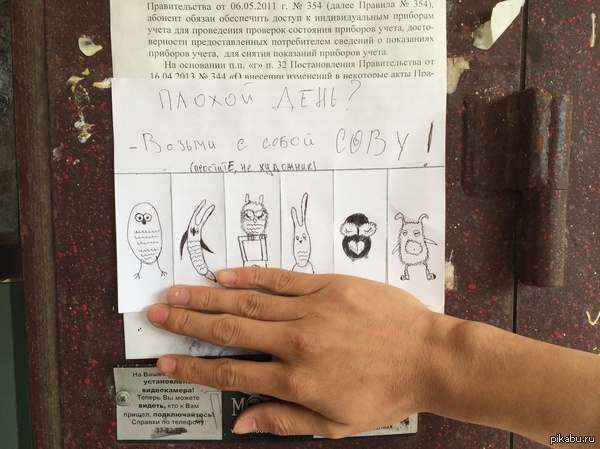 Правительства от 06.05.2011 г. № 354 (далее Правила № 354),
абонент обязан обеспечить доступ к индивидуальным приборам
учета для проведения проверок состояния приборов учета, досто-
верности предоставленных потребителем сведений о показаниях
приборов учета, для снятия показаний приборов учета.
На основании п.п. «г» п. 32 Постановления Правительства от
16.04.2013 № 344 «О внесении изменений в некоторые акты Пра-
ПЛОХОЙ ДЕНЬ?
- Возьми с собой СОВУ!
(простите, не художник)
На Вашем
установлена
видеокамера!
Теперь Вы можете
видеть, кто к Вам
пришел, подключайтесь!
Справки по телефону:
pikabu.ru